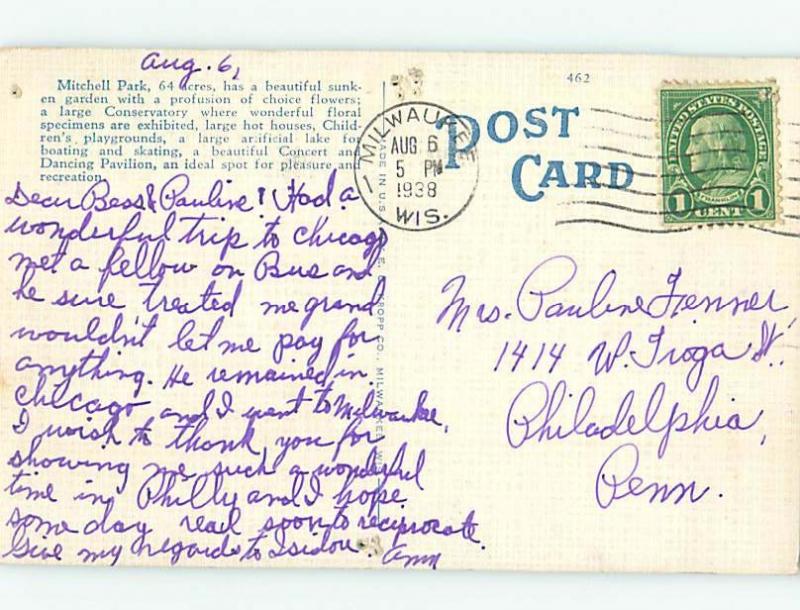 Aug. 6,
Mitchell Park, 64 acres, has a beautiful sunk-
en garden with a profusion of choice flowers;
a large Conservatory where wonderful floral
specimens are exhibited, large hot houses, Child-
ren's playgrounds, a large artificial lake for
boating and skating, a beautiful Concert and
Dancing Pavilion, an ideal spot for pleasure and
recreation.
Dear Bess & Pauline! Had a
wonderful trip to Chicago
met a fellow on Bus and
he sure treated me grand
wouldn't let me pay for
anything. He remained in
Chicago and I went to Milwaukee,
I wish to thank you for
showing me such a wonderful
time in Philly and I hope
some day real soon to reciprocate.
Give my regards to Isidor. Ann
MADE IN U.S.
E. C. KROPP CO., MILWAUKEE, WIS.
462
POST
CARD
MILWAUKEE
AUG 6
5 PM
1938
WIS.
UNITED STATES POSTAGE
FRANKLIN
1 CENT 1
Mrs. Pauline Fenner,
1414 W. Tioga St.
Philadelphia,
Penn.